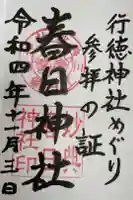 行徳神社めぐり
参拝の証
春日神社
令和四年十一月三日